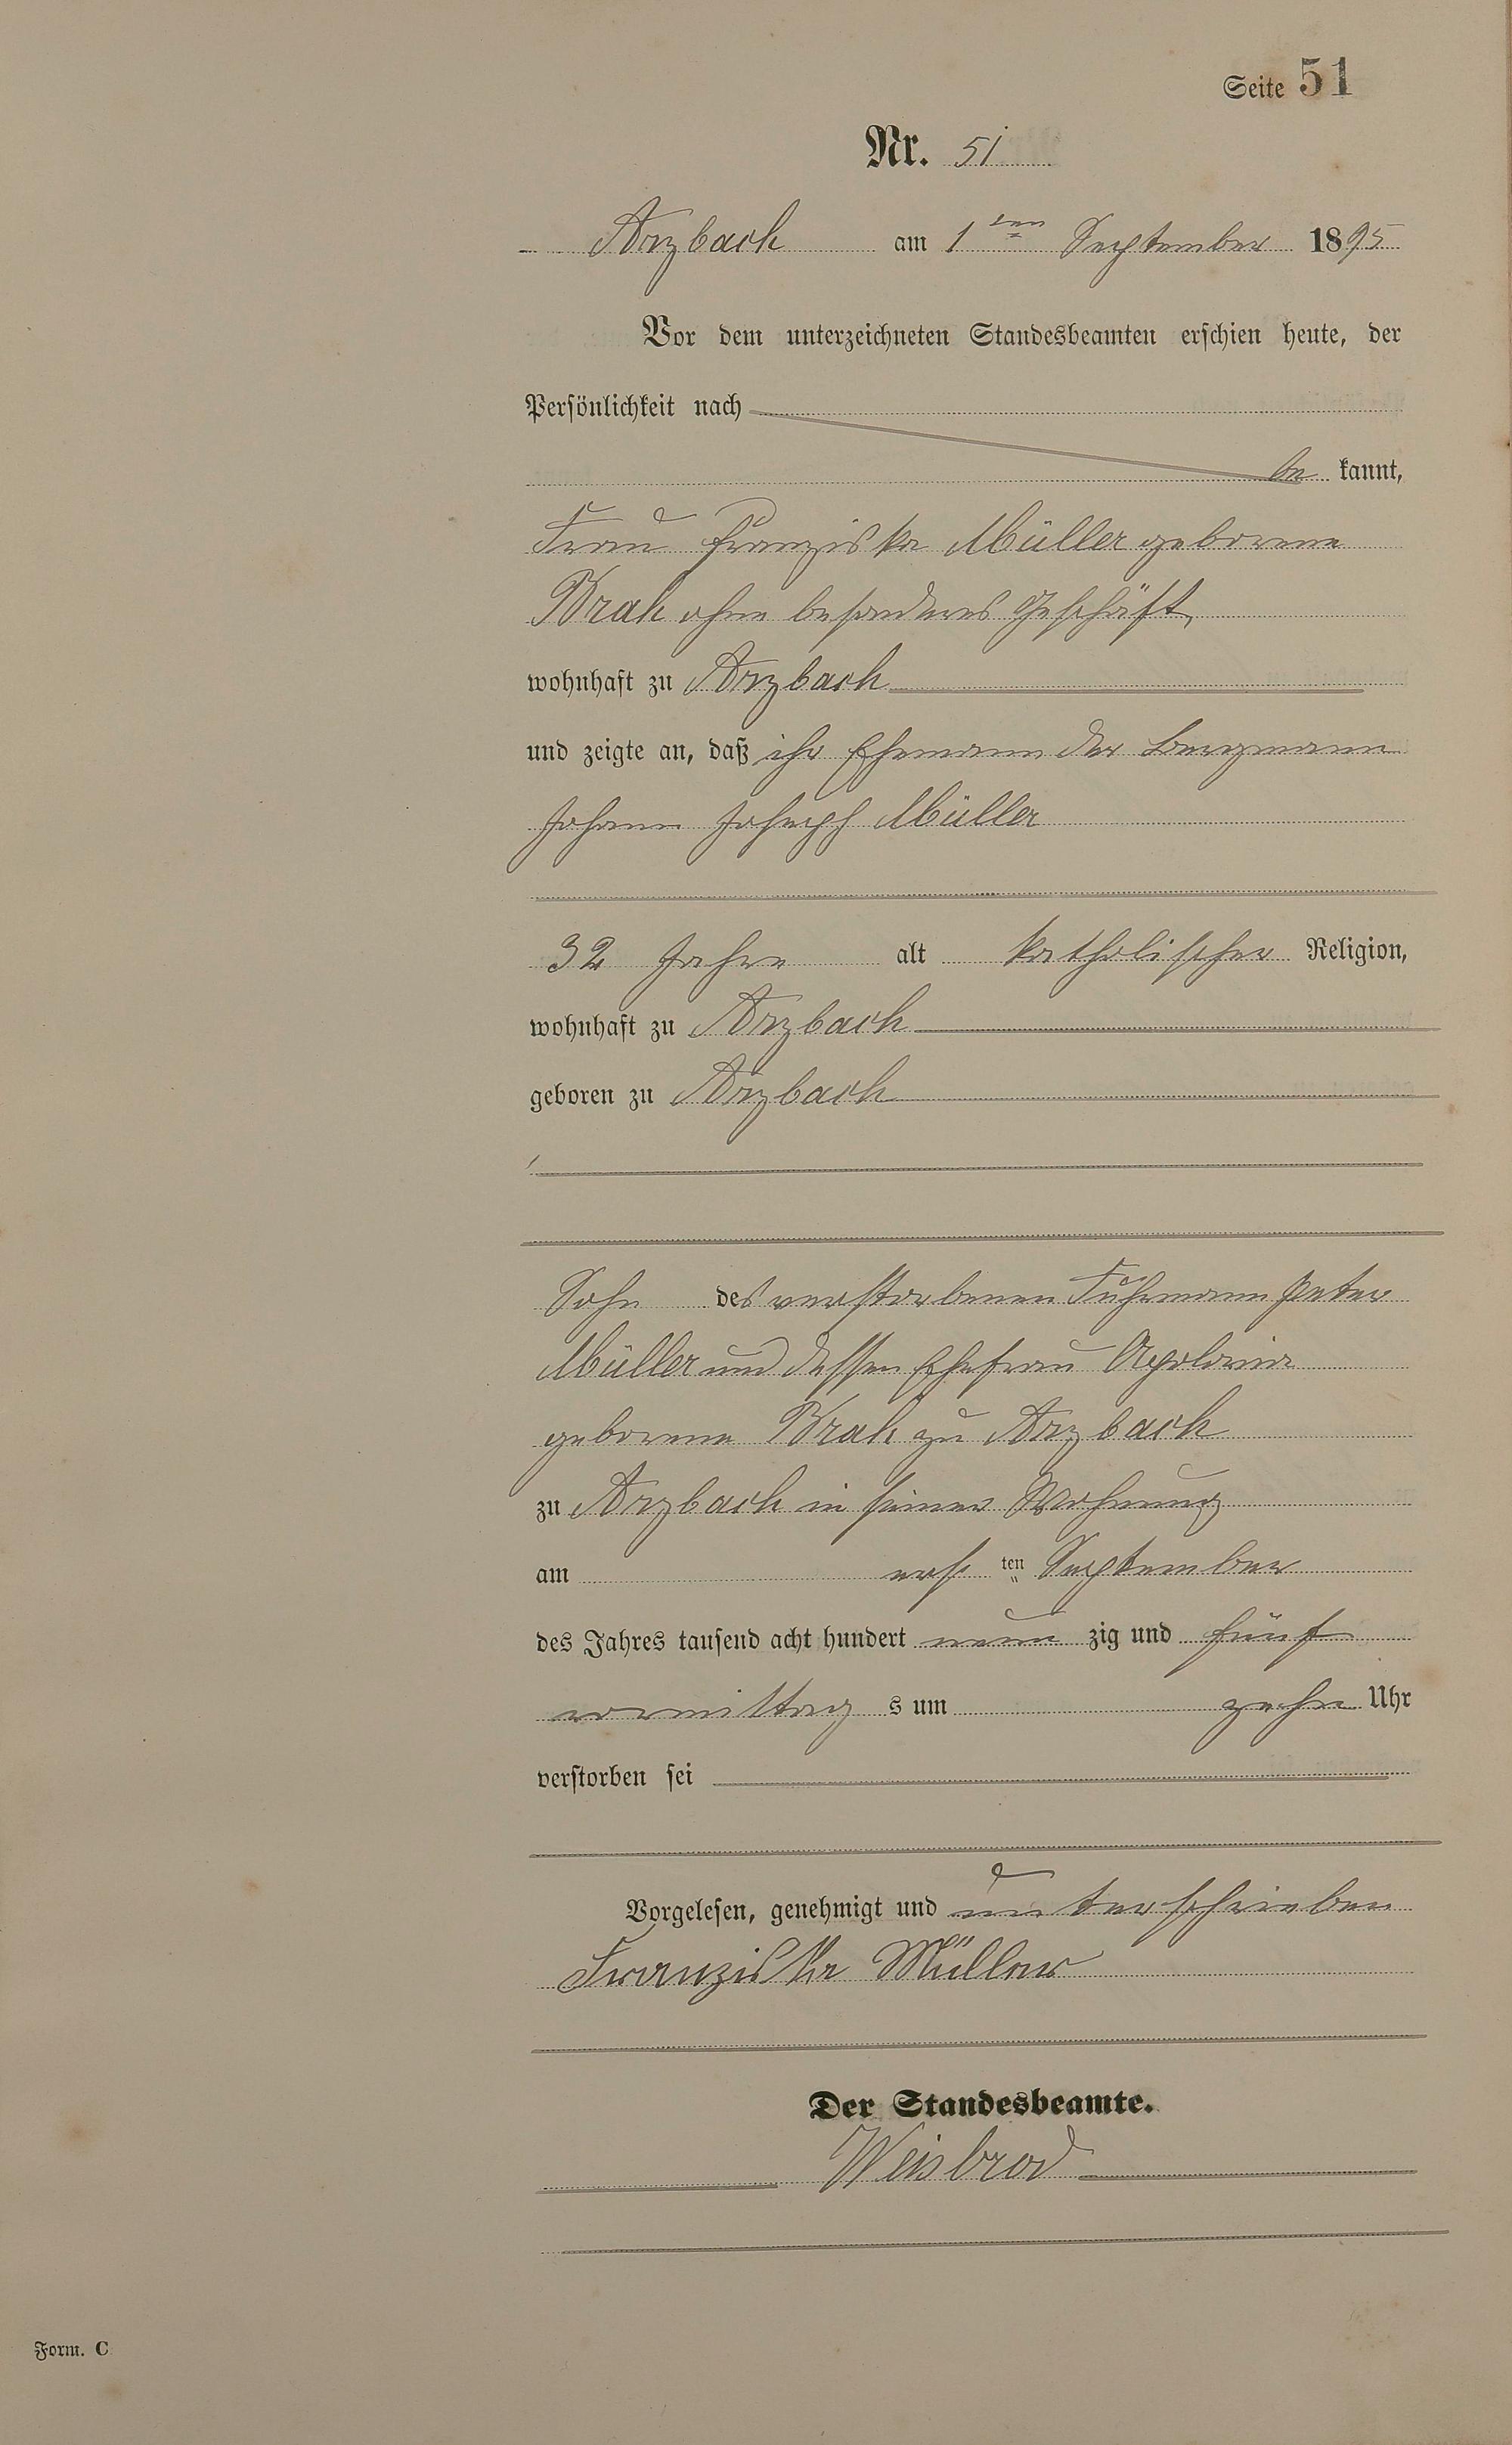 Seite 51
Nr. 51
Arzbach am 1ten September 1895
Vor dem unterzeichneten Standesbeamten erschien heute, der
Persönlichkeit nach
be kannt,
Frau Franziska Müller geborene
Brah ohne besonderes Geschäft,
wohnhaft zu Arzbach
und zeigte an, daß ihr Ehemann der Bergmann
Johann Joseph Müller
32 Jahre alt katholischer Religion,
wohnhaft zu Arzbach
geboren zu Arzbach
Sohn des verstorbenen Fuhrmann Peter
Müller und dessen Ehefrau Apolonia
geborene Brah zu Arzbach
zu Arzbach in seiner Wohnung
am ersten September
des Jahres tausend acht hundert neun zig und fünf
vormittag s um zehn Uhr
verstorben sei
Vorgelesen, genehmigt und unterschrieben
Franziska Müller
Der Standesbeamte.
Weisbrod
Form. C